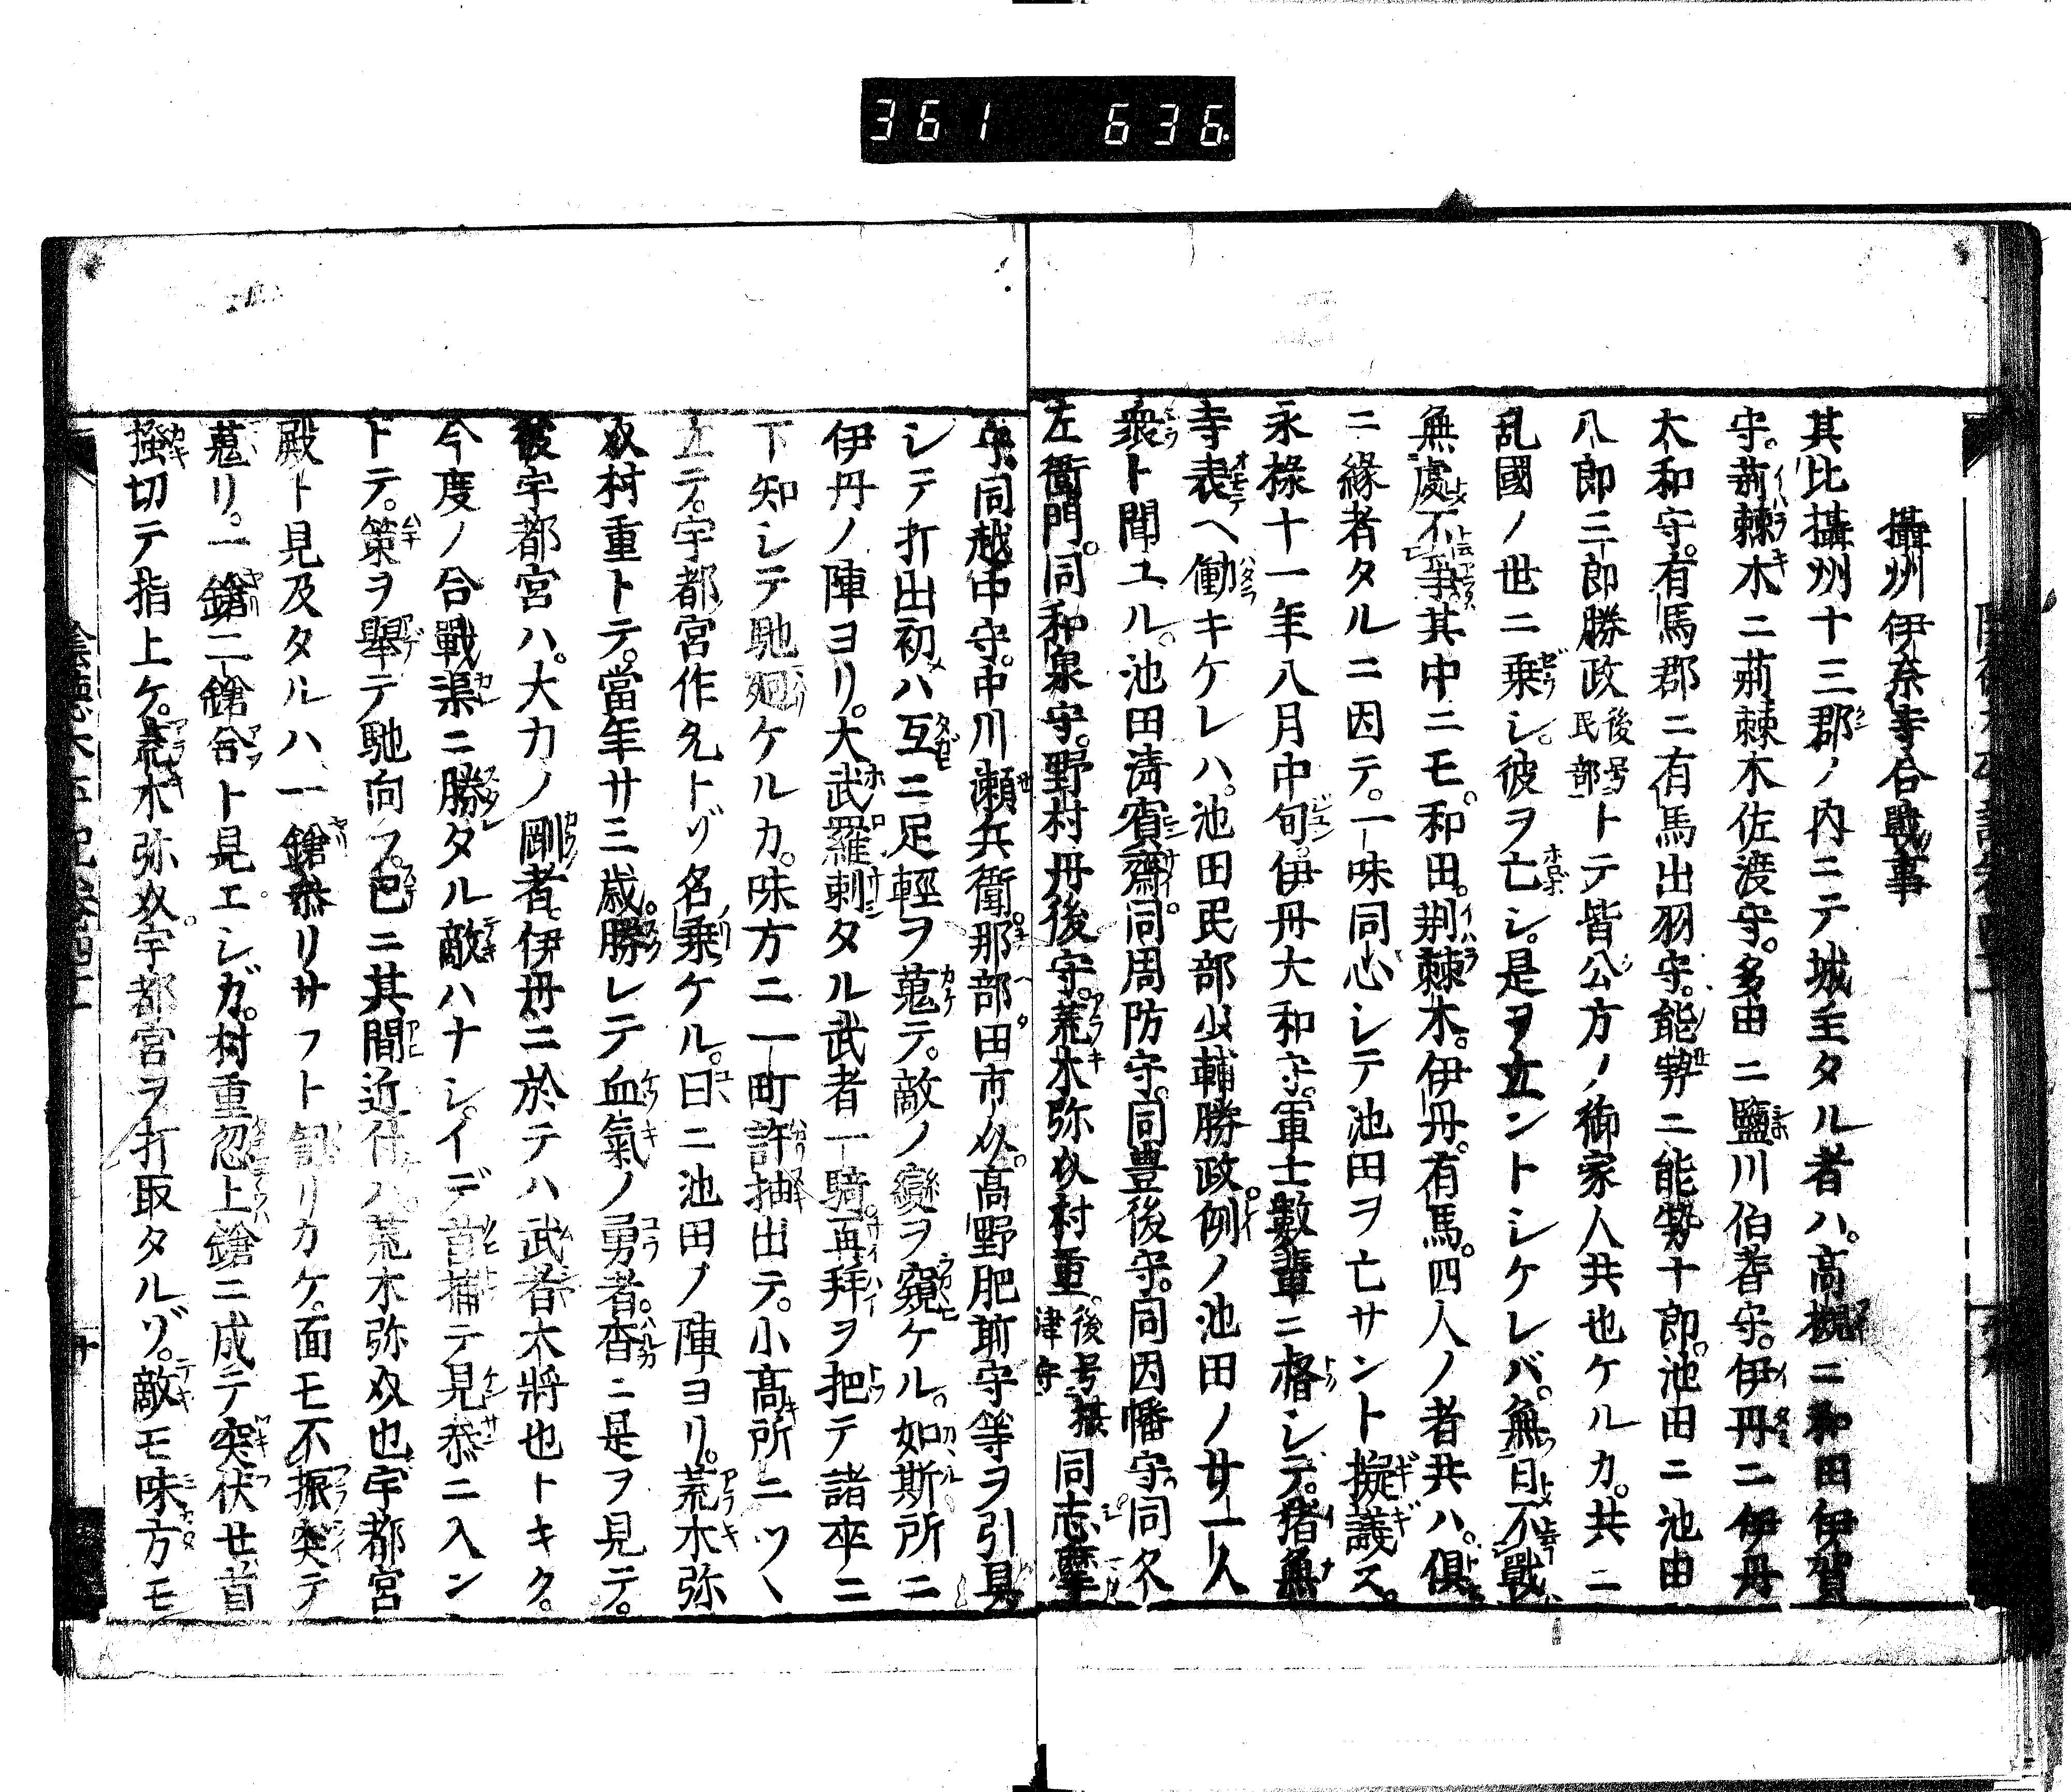 361 636
攝州伊奈寺合戰事
其比攝州十三郡ノ内ニテ城主タル者ハ。高槻ニ和田伊賀
守。荊棘木ニ荊棘木佐渡守。多田ニ鹽川伯耆守。伊丹ニ伊丹
大和守。有馬郡ニ有馬出羽守。能勢ニ能勢十郎。池田ニ池田
八郎三郎勝政後号民部トテ皆公方ノ御家人共也ケルカ。共ニ
乱國ノ世ニ乗シ。彼ヲ亡シ。是ヲ立ントシケレバ。無日不戰
無處不爭其中ニモ。和田。荆棘木。伊丹。有馬。四人ノ者共ハ。倶
ニ縁者タルニ因テ。一味同心シテ池田ヲ亡サント擬議ス。
永祿十一年八月中旬。伊丹大和守。軍士數輩ニ楷シテ。猪無
寺表ヘ働キケレハ。池田民部少輔勝政。例ノ池田ノ廿一人
衆ト聞ユル。池田淸賓齋。同周防守。同豊後守。同因幡守。同久
左衞門。同和泉守。野村丹後守。荒木弥奴村重。後号攝津守同志摩
守。同越中守。中川瀬兵衛。那部田市奴。髙野肥前守等ヲ引具
シテ打出初ハ互ニ足輕ヲ蒐テ。敵ノ變ヲ窺ケル。如斯所ニ
伊丹ノ陣ヨリ。大武羅刺タル武者一騎。再拜ヲ把テ諸卒ニ
下知シテ馳廻ケルカ。味方ニ一町許抽出テ。小髙所ニツヽ
立テ。宇都宮作允トゾ名乗ケル。曰ニ池田ノ陣ヨリ。荒木弥
奴村重トテ。當年廿三歳。勝レテ血氣ノ勇者。杳ニ是ヲ見テ。
彼宇都宮ハ。大力ノ剛者。伊丹ニ於テハ武者大將也トキク。
今度ノ合戰渠ニ勝タル敵ハナシ。イデ首捕テ見参ニ入ン
トテ。策ヲ擧テ馳向フ。已ニ其間近付ハ。荒木弥奴也宇都宮
殿ト見及タルハ一鎗参リサフト訇リカケ。面モ不振突テ
蒐リ。一鎗二鎗合ト見エシガ。村重忽上鎗ニ成テ突伏セ首
掻切テ指上ケ。荒木弥奴宇都宮ヲ打取タルゾ。敵モ味方モ